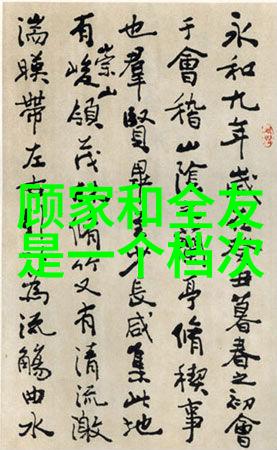 顾家和全友
是一个档次
永和九年歲丑暮春之初會
于會稽山陰亭脩稧事
也羣賢畢少長咸集此地
有崇山峻領茂脩竹又有清流激
湍暎帶左為流觴曲水